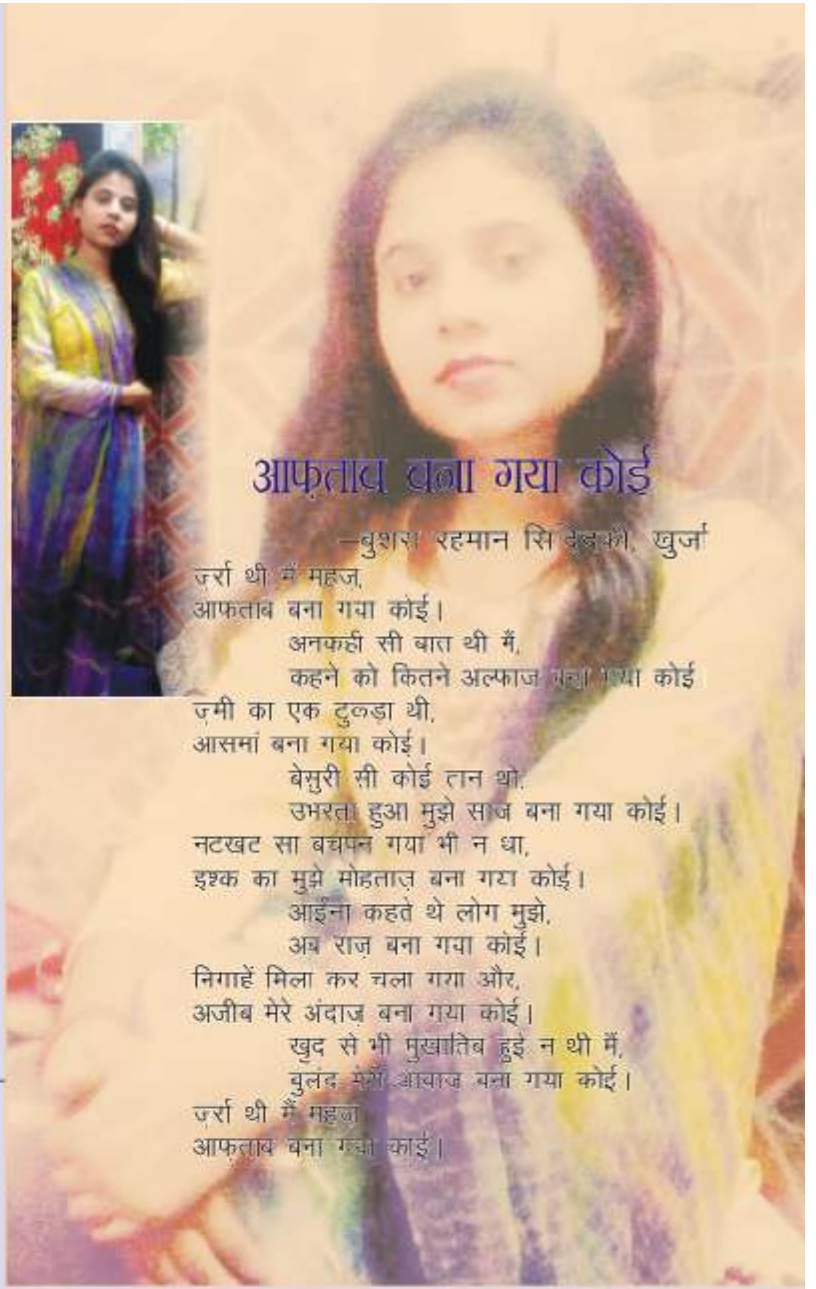 आफ़ताब बना गया कोई
–बुशरा रहमान सिद्दकी, खुर्जा
ज़र्रा थी मैं महज़,
आफताब बना गया कोई।
अनकही सी बात थी मैं,
कहने को कितने अल्फाज बना गया कोई
ज़्मी का एक टुकड़ा थी,
आसमां बना गया कोई।
बेसुरी सी कोई तान थी,
उभरता हुआ मुझे साज बना गया कोई।
नटखट सा बचपन गया भी न था,
इश्क का मुझे मोहताज़ बना गया कोई।
आईना कहते थे लोग मुझे,
अब राज़ बना गया कोई।
निगाहें मिला कर चला गया और,
अजीब मेरे अंदाज बना गया कोई।
खुद से भी मुखातिब हुई न थी मैं,
बुलंद मेरी आवाज बना गया कोई।
ज़र्रा थी मैं महज़
आफ़ताब बना गया कोई।